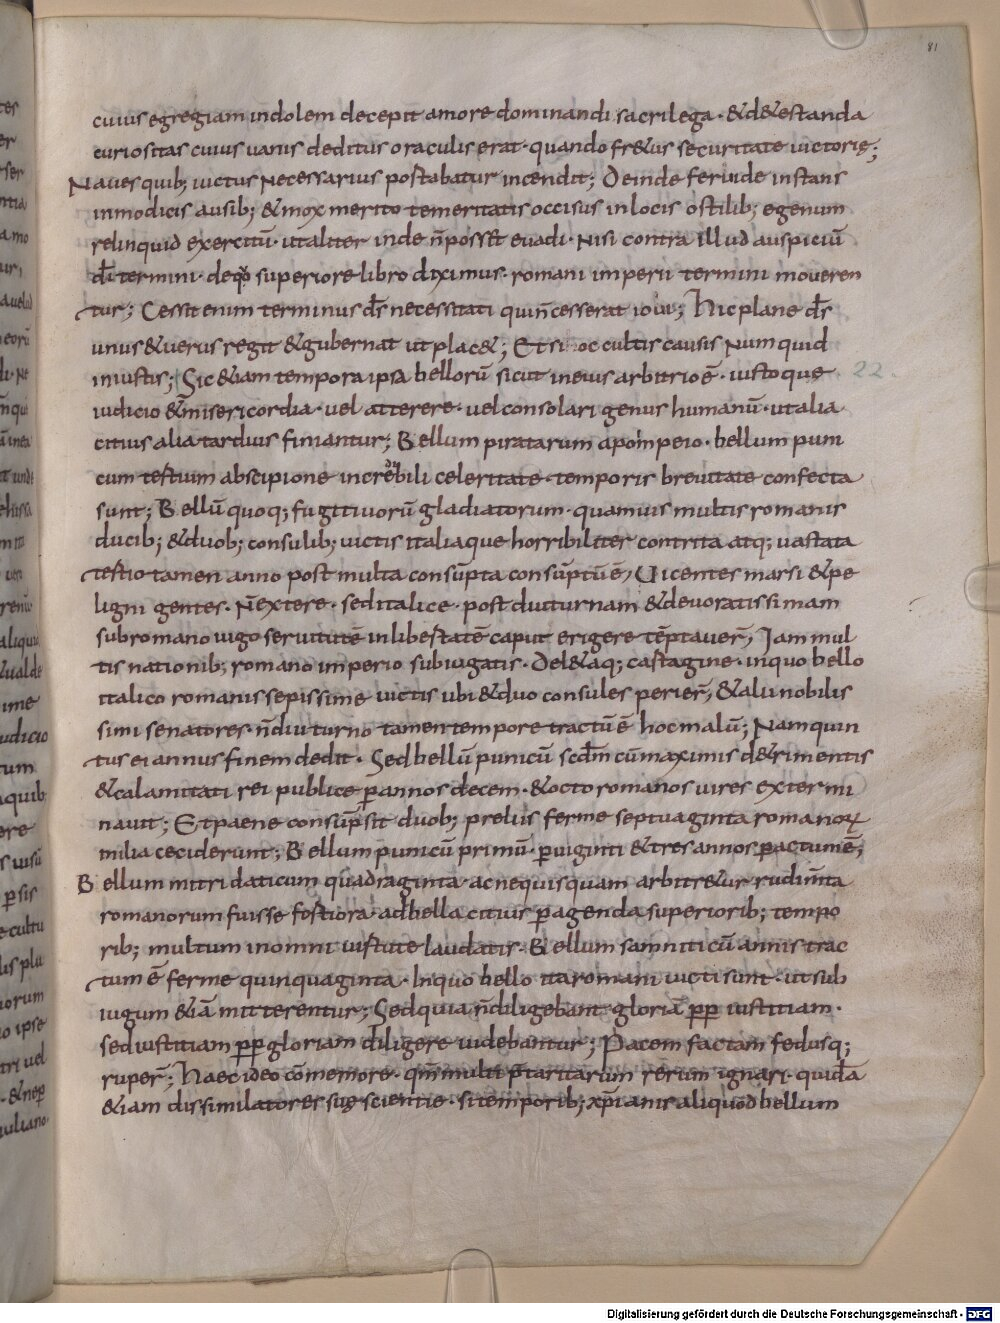 81
cuius egregiam indolem decepit amore dominandi sacrilega · & d&estanda
curiositas cuius uanis deditus oraculis erat · quando fr&us securitate uictorię;
Naues quib; uictus necessarius portabatur incendit; Deinde feruide instans
inmodicis ausib; & mox merito temeritatis occisus in locis ostilib; egenum
relinquid exercitū · ut aliter inde n̄ poss& euadi · Nisi contra illud auspiciū
dī termini · de quo superiore libro diximus · romani imperii termini moueren
tur; Cessit enim terminus ds̄ necessitati qui n̄ cesserat ioui; Hic plane ds̄
unus & uerus regit & gubernat ut plac&; Et si occultis causis Num quid
iniustis; Sic &iam tempora ipsa bellorū sicut in eius arbitrio ē · iustoque 22.
iudicio & misericordia · uel atterere · uel consolari genus humanū · ut alia
citius alia tardius finiantur; Bellum piratarum a pompeio · bellum puni
cum tertium ab scipione incredibili celeritate · temporis breuitate confecta
sunt; Bellū quoq; fugitiuorū gladiatorum · quamuis multis romanis
ducib; & duob; consulib; uictis italiaque horribiliter contrita atq; uastata
tertio tamen anno post multa consūpta consūptū ē, Vicentes marsi & pe
ligni gentes · N̄ extere · sed italice · post diuturnam & deuoratissimam
sub romano iugo seruitutē in libertatē caput erigere tēptauer̄, Iam mul
tis nationib; romano imperio subiugatis · Del&aq; cartagine · in quo bello
italico romanis sepissime uictis ubi & duo consules perier̄, & alii nobilis
simi senatores · n̄ diuturno tamen tempore tractū ē hoc malū; Nam quin
tus ei annus finem dedit · Sed bellū punicū scdm̄ cū maximis d&rimentis
& calamitati rei publice p̄ annos decem · & octo romanos uires extermi
nauit; Et paene consūpsit duob; preliis ferme septuaginta romanoꝝ
milia ceciderunt; Bellum punicū primū · p̄ uiginti & tres annos p̄actum ē;
Bellum mitridaticum quadraginta · ac ne quisquam arbitr&ur rudim̄ta
romanorum fuisse fortiora · ad bella citius p̄agenda superiorib; tempo
rib; multum in omni uirtute laudatis · Bellum samniticū annis trac
tum ē ferme quinquaginta · In quo bello ita romani uicti sunt · ut sub
iugum &iā mitterentur; Sed quia n̄ diligebant gloriā pp̄ iustitiam ·
sed iustitiam pp̄ gloriam diligere uidebantur; Pacem factam fedusq;
ruper̄; Haec ideo cōmemore · qm̄ multi p̄teritarum rerum ignari · quidā
&iam dissimulatores suę scientie · si temporib; xp̄ianis aliquod bellum
Digitalisierung gefördert durch die Deutsche Forschungsgemeinschaft - DFG